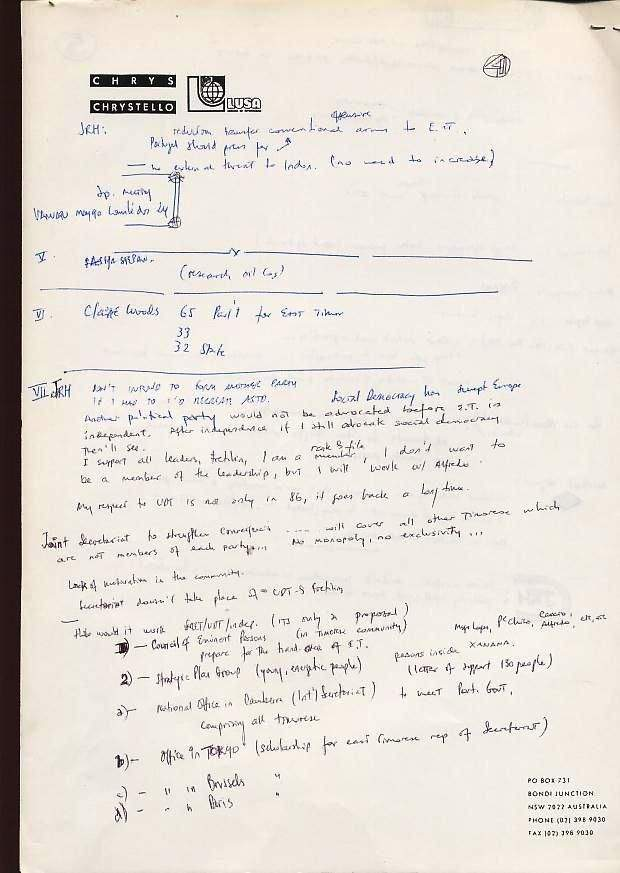 4
CHRYS
CHRYSTELLO
LUSA
offensive
JRH: reduction transfer conventional arms to E.T.
Portugal should press for
— no external threat to Indon. (no need to increase)
Sp. meeting
V
(research oil Gas)
VI Claire Woods 65 Parl't for East Timor
33
32 State
VII JRH DON'T INTEND TO FORM ANOTHER PARTY
IF I HAD TO I'D RECREATE ASTD. Social Democracy has swept Europe
Another political party would not be advocated before E.T. is
independent. After independence if I still advocate social democracy
then I'll see.
I support all leaders, Fretilin, I am a rank & file member, I don't want to
be a member of the leadership, but I will work w/ Alfredo.
My respect to UDT is not only in 86, it goes back a long time.
Joint Secretariat to strengthen Convergencia .... will cover all other Timorese which
are not members of each party... No monopoly, no exclusivity...
Lack of maturation in the community.
Secretariat doesn't take place of UDT-Fretilin
How would it work FRET/UDT/indep. (its only a proposal)
1)— Council of Eminent Persons (in Timorese community)
prepare for the hand over of E.T.
persons inside XANANA.
2)— Strategic Plan Group (young, energetic people) (letter of support 130 people)
a)— National Office in Canberra (Int'l Secretariat) to meet Port. Govt.
comprising all timorese
b)— Office in TOKYO (scholarship for east timorese rep of Secretariat)
c)— " in Brussels "
d)— " " Paris "
PO BOX 731
BONDI JUNCTION
NSW 2022 AUSTRALIA
PHONE (02) 398 9030
FAX (02) 398 9030